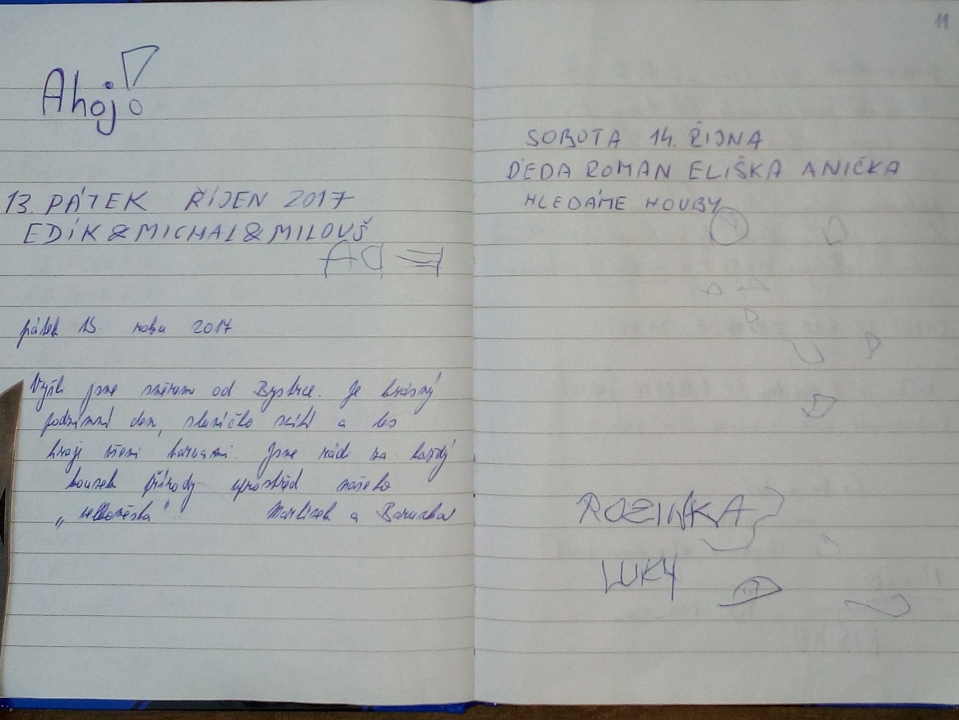 Ahoj!
13. PÁTEK ŘÍJEN 2017
EDÍK & MICHAL & MILOUŠ
pátek 13. roku 2017
Vyšli jsme směrem od Bystrce. Je krásný
podzimní den, sluníčko svítí a les
hraje všemi barvami. Jsme rád za každý
kousek přírody uprostřed našeho
„velkoměsta".
a
11
SOBOTA 14. ŘÍJNA
DĚDA ROMAN ELIŠKA ANIČKA
HLEDÁME HOUBY
ROZINKA
LUKY